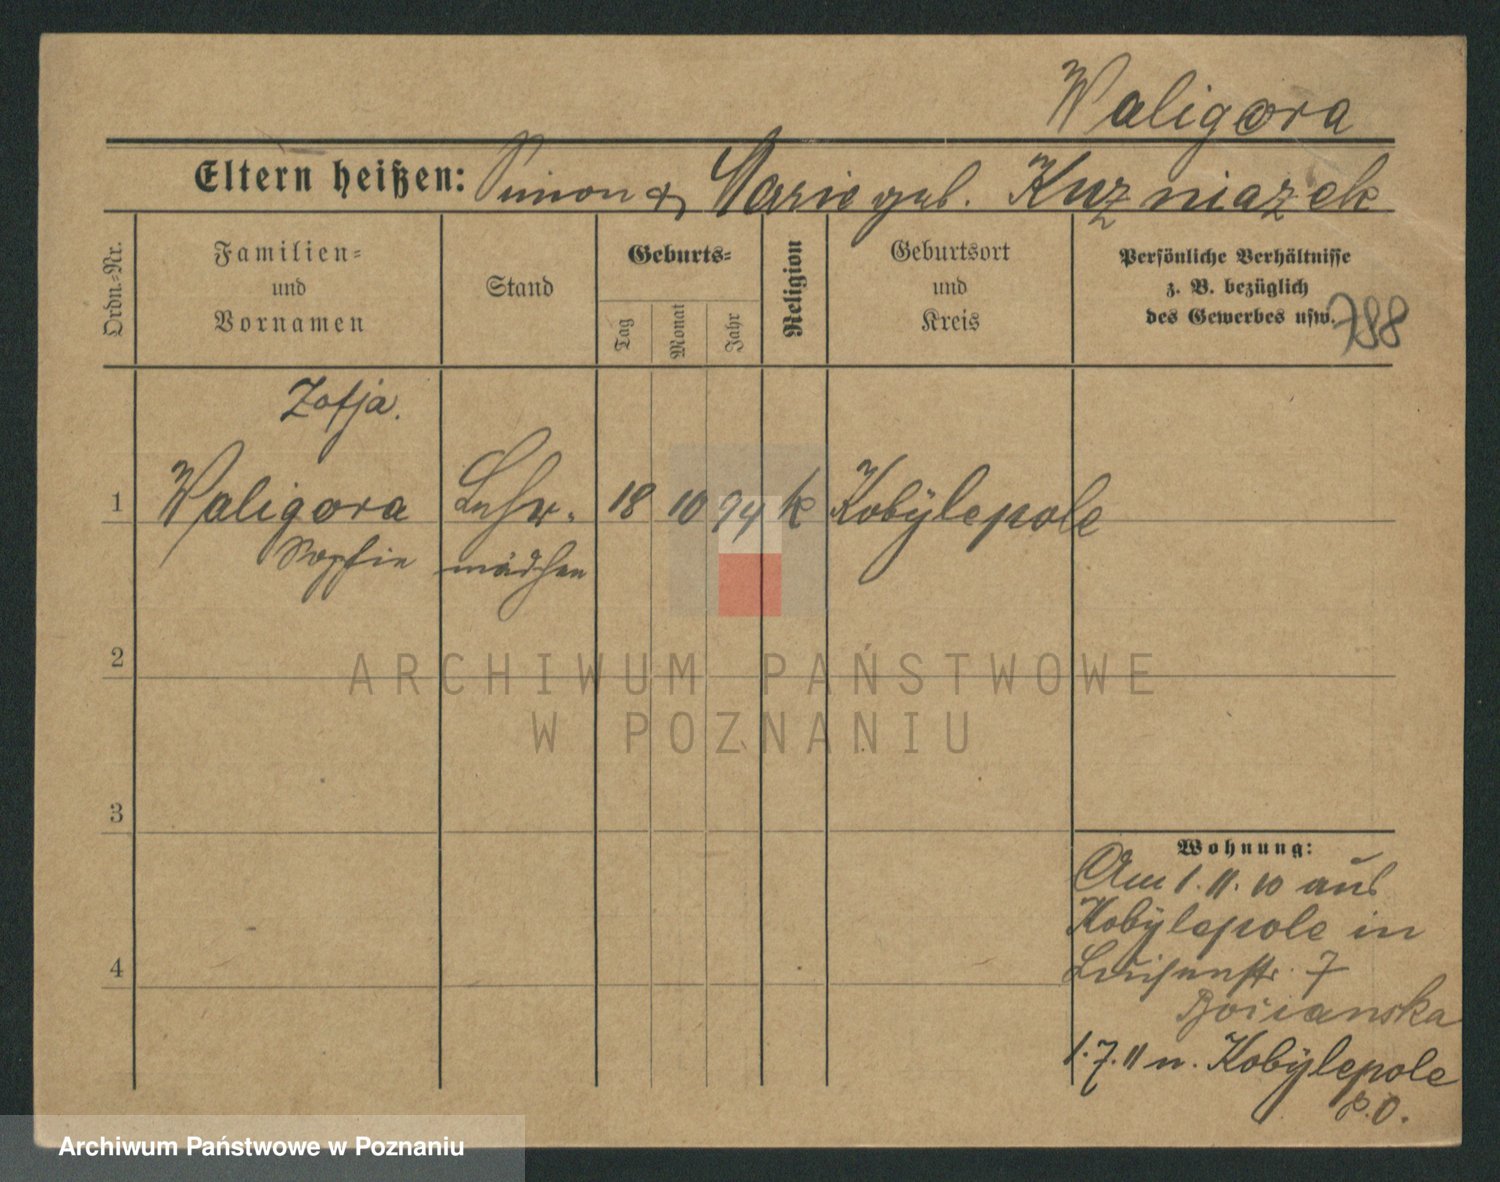 Waligora
Eltern heißen: Simon & Marie geb. Kuzniazek
Ordn.-Nr.
Familien=
und
Vornamen
Stand
Geburts=
Tag
Monat
Jahr
Religion
Geburtsort
und
Kreis
Persönliche Verhältnisse
z. B. bezüglich
des Gewerbes usw.
788
Zofja.
1 Waligora Lehr- 18 10 94 k Kobylepole
Sophie mädchen
2
ARCHIWUM PAŃSTWOWE
W POZNANIU
3
Wohnung:
Am 1.11.10 aus
Kobylepole in
4 Luisenstr. 7
1.7.11 n. Kobylepole
P.O.
Archiwum Państwowe w Poznaniu